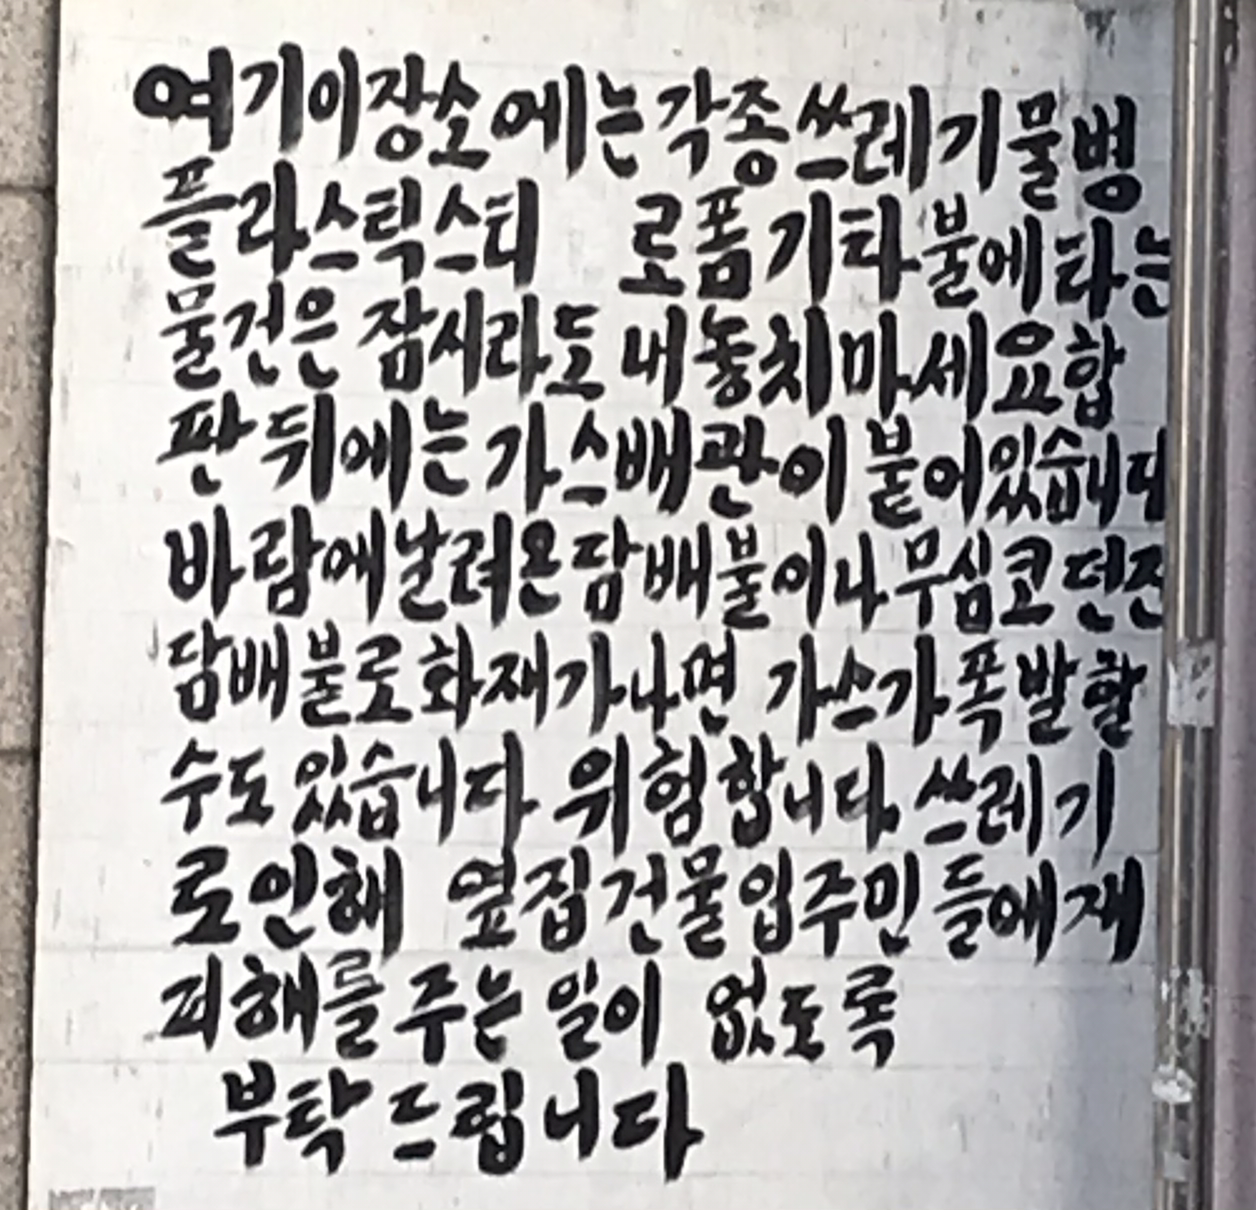 여기이장소에는각종쓰레기물병
플라스틱스티 로폼기타불에타는
물건은 잠시라도 내놓치마세요합
판 뒤에는가스배관이 붙어있습니다
바람에날려온담배불이나무심코던진
담배불로화재가나면 가스가폭발할
수도있습니다 위험합니다 쓰레기
로인해 옆집건물입주민들애재
피해를 주는 일이 없도록
부탁드립니다